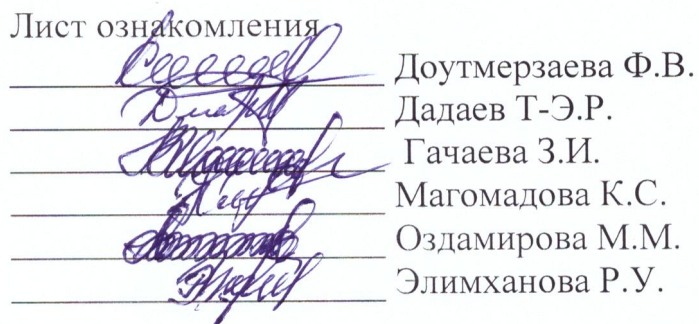 Лист ознакомления
Доутмерзаева Ф.В.
Дадаев Т-Э.Р.
Гачаева З.И.
Магомадова К.С.
Оздамирова М.М.
Элимханова Р.У.